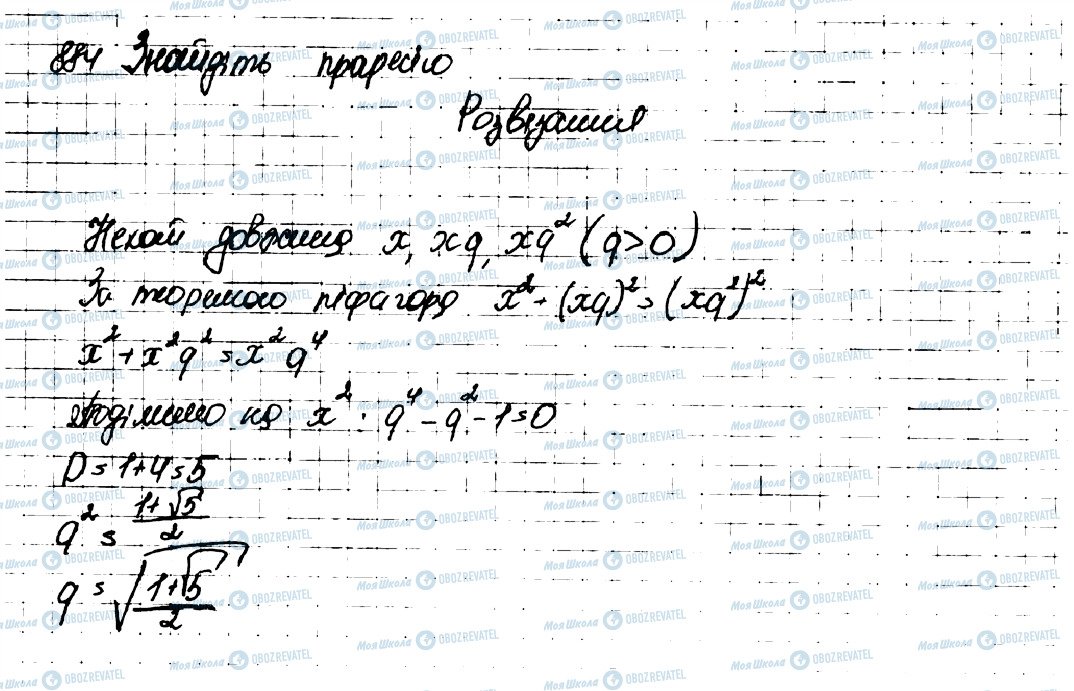 884 Знайдіть
Розвязання
Нехай довжина x, xq, xq² (q>0)
За теоремою піфагора x² + (xq)² = (xq²)²
x² + x²q² = x²q⁴
поділимо на x² : q⁴ - q² - 1 = 0
D = 1+4 = 5
q² = (1+√5)/2
q = √((1+√5)/2)
МояШкола OBOZREVATEL